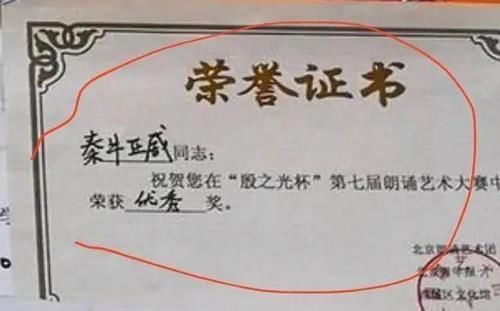 荣誉证书
秦牛正威同志:
祝贺您在“殷之光杯”第七届朗诵艺术大赛中
荣获 优秀 奖。
北京朗诵艺术团
区文化馆